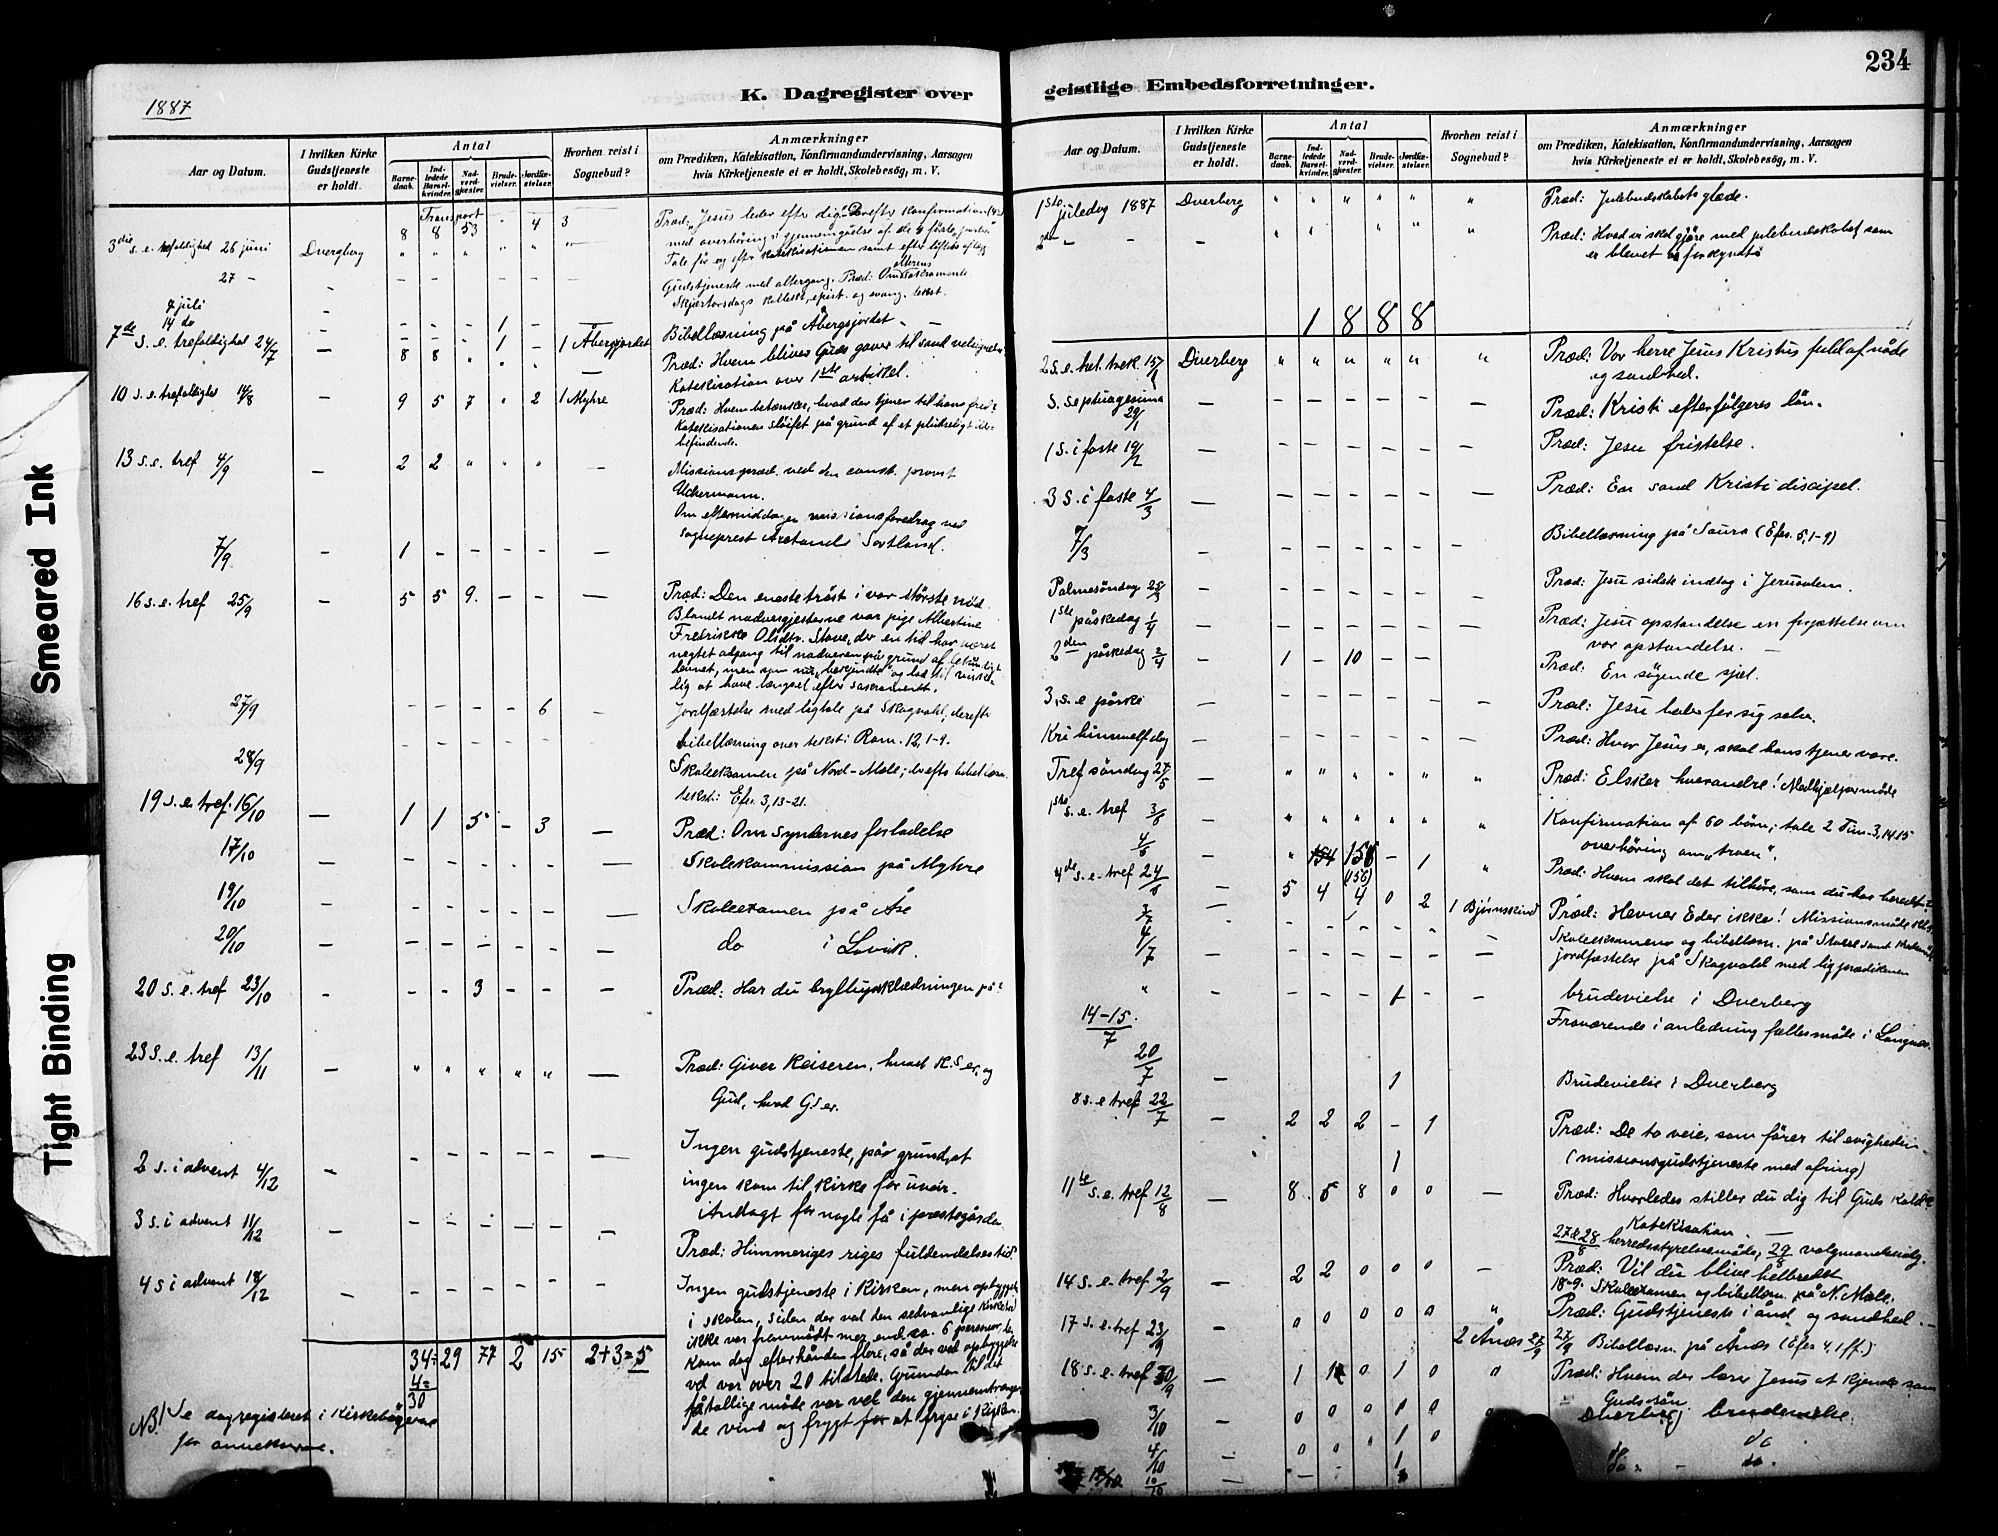 234
K. Dagregister over
geistlige Embedsforretninger.
1887
Aar og Datum.
I hvilken Kirke Gudstjeneste er holdt.
Antal
Barnedaab.
Indledede Barselkvinder.
Nadverdgjester.
Brudevielser.
Jordfæstelser.
Hvorhen reist i Sognebud?
Anmærkninger
om Prædiken, Katekisation, Konfirmandundervisning, Aarsagen
hvis Kirketjeneste ei er holdt, Skolebesög, m. V.
Transport 8 8 53 " 4 3
Præd: "Jesus leder efter dig". Derefter Konfirmation
3die s. e. trefoldighed 26 juni Dvergberg " " " " " "
Tale før og efter katekisationen samt efter løftets aflæg
27 – –
Gudstjeneste med altergang. Præd: Om alterens sakramente
Skjærtorsdags kollekt, epist. og evang. tekst.
7 juli –
14 do – – – – 1 – –
Bibellæsning på Åbergsjordet
7de s. e. trefoldighed 24/7 – 8 8 " 1 – 1 Åbergsjordet
Præd: Hvem bliver Guds gaver til sand velsignelse
Katekisation over 1ste artikel.
10 s. e. trefoldighed 14/8 – 9 5 7 " 2 1 Myhre
Præd: Hvem betænker, hvad der tjener til hans fred?
Katekisationen sløifet på grund af et pludseligt ildebefindende.
13 s. e. tref 4/9 – 2 2 " " " –
Missionspræd. ved den const. provst
Uchermann.
Om eftermiddagen missionsforedrag ved
sogneprest Sortland.
7/9 – 1 – – – – –
16 s. e. tref 25/9 – 5 5 9 – – –
Præd: Den eneste trøst i vor største nød.
Blandt nadvergjesterne var pige Albertine
Fredrikke Olsdtr. Stave, der en tid har været
negtet adgang til nadveren på grund af
lig at have længsel efter sacramentet.
27/9 – – – – 6 –
Jordfæstelse med ligtale på Skogvold, derefter
bibellæsning over tekst: Rom. 12, 1-9.
28/9 – – – – – –
Skoleeksamen på Nord-Mæle; derefter bibellæsn.
tekst: Efes. 3, 13-21.
19 s. e. tref. 16/10 – 1 1 5 – 3 –
Præd: Om syndernes forladelse
17/10 – – – – – – –
Skolekommission på Myhre
19/10 – – – – – – –
Skoleexamen på Åse
20/10 – – – – – – –
do i Lovik.
20 s. e. tref 23/10 – – – 3 – – –
Præd: Har du bryllupsklædningen på?
23 s. e. tref 13/11 – " " " " " –
Præd: Giver Keiseren, hvad K.s er, og
Gud, hvad G.s er.
2 s. i advent 4/12 – – – – – – –
Ingen gudstjeneste, på grund at
ingen kom til kirke for uveir.
Andagt for nogle få i prestegården
3 s. i advent 11/12 – – – – – – –
Præd: Himmeriges riges fuldendelsestid.
4 s i advent 18/12 – – – – – – –
Ingen gudstjeneste i kirken, men opbyggelse
i skolen, siden der ved den sedvanlige kirketid
ikke var fremmødt mer end ca. 6 personer, der
kom dog efterhånden flere, så der ved opbyggelsen
vel var over 20 tilstede. Grunden til det
fåtallige møde var vel den gjennemtrængende
vind og frygt for at fryse i kirken.
34 29 77 2 15 2+3=5
4
30
NB! Se dagregisteret i kirkebøgerne
for annekserne.
Aar og Datum.
I hvilken Kirke Gudstjeneste er holdt.
Antal
Barnedaab.
Indledede Barselkvinder.
Nadverdgjester.
Brudevielser.
Jordfæstelser.
Hvorhen reist i Sognebud?
Anmærkninger
om Prædiken, Katekisation, Konfirmandundervisning, Aarsagen
hvis Kirketjeneste ei er holdt, Skolebesög, m. V.
1ste juledag 1887 Dverberg " " " " " "
Præd: Julebudskabets glæde.
2den – – – " " " " "
Præd: Hvad vi skal gjøre med julebudskabet som
er blevet os forkyndt
1 8 8 8
2 s. e. hel. trek. 15/1 Dverberg " " " " " "
Præd: Vor herre Jesus Kristus fuld af nåde
og sandhed.
S. septuagesima 29/1 – – – – – – –
Præd: Kristi efterfølgeres løn.
1 s. i faste 19/2 – – – – – – –
Præd: Jesu fristelse.
3 s. i faste 4/3 – – – – – – –
Præd: En sand Kristi discipel.
7/3 – – – – – – –
Bibellæsning på Saura (Efes. 5, 1-9)
Palmesøndag 25/3 – – – – – – –
Præd: Jesu sidste indtog i Jerusalem.
1ste påskedag 1/4 – – – – – –
Præd: Jesu opstandelse en forjættelse om
vor opstandelse.
2den påskedag 2/4 – 1 – 10 – –
Præd: En søgende sjæl.
3. s. e påske – – – – – –
Præd: Jesu beder for sig selv.
Kri himmelf dag – – – – – – –
Præd: Hvor Jesus er, skal hans tjener være.
Tref søndag 27/5 – " " " " " "
Præd: Elsker hverandre! Medhjælpermøde
1ste s. e. tref 3/6 – " " " " " "
Konfirmation af 60 børn; tale 2 Tim. 3, 14.15
overhøring om "troen".
– " 154 156 – 1 "
(156)
4de s. e. tref 24/6 – 5 4 4 0 2 1 Bjørnskind
Præd: Hvem skal det tilhøre, som du har beredt?
Præd: Hevner Eder ikke! Missionsmøde
Skoleeksamen og bibellæsn. på Stave samt
4/7 – – – – – –
jordfæstelse på Skogvold med ligprædikener
" – – – – 1 – –
brudevielse i Dverberg
14–15/7
Fraværende i anledning fællesmøde i Langnes.
20/7 – 1
Brudevielse i Dverberg
8 s. e tref 22/7 – 2 2 2 – 1
Præd: De to veie, som fører til evigheden.
1
(missionsgudstjeneste med ofring)
11te s. e. tref 12/8 – 8 5 8 0 0 –
Præd: Hvorledes stiller du dig til Guds kald?
Katekisation. –
27 & 28/8 herredsstyrelsemøde, 29/8 valgmandsvalg.
14 s. e. tref 2/9 – 2 2 0 0 0 –
Præd: Vil du blive helbredet
18-9. Skoleexamen og bibellæsn. på N. Mæle.
17 s. e. tref 23/9 0 0 0 0 0 "
Præd: Gudstjeneste i ånd og sandhed.
2 Ånes 27/9
27/9 Bibellæsn. på Ånes (Efes 4. 1 ff.)
18 s. e. tref 30/9 – 1 1 0 1 0 "
Præd: Hvem der lærer Jesus at kjende som
Gudssøn.
3/10 – 0 0 0 1 0 "
Dverberg brudevielse.
4/10 – 0 0 " 1 0
do do
10/10 – – – 1
do. – do.
Smeared Ink
Tight Binding